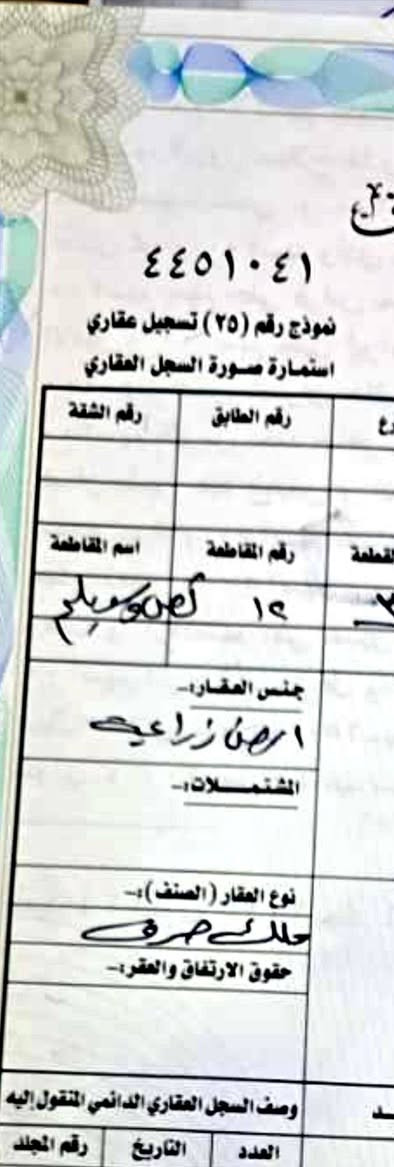 ٤٤٥١٠٤١
نموذج رقم (٢٥) تسجيل عقاري
استمارة صورة السجل العقاري
رقم الطابق رقم الشقة
القطعة رقم المقاطعة اسم المقاطعة
١٢
جنس العقار:-
ارض زراعية
المشتملات:-
نوع العقار (الصنف):-
ملك صرف
حقوق الارتفاق والعقر:-
وصف السجل العقاري الدائمي المنقول إليه
العدد التاريخ رقم المجلد